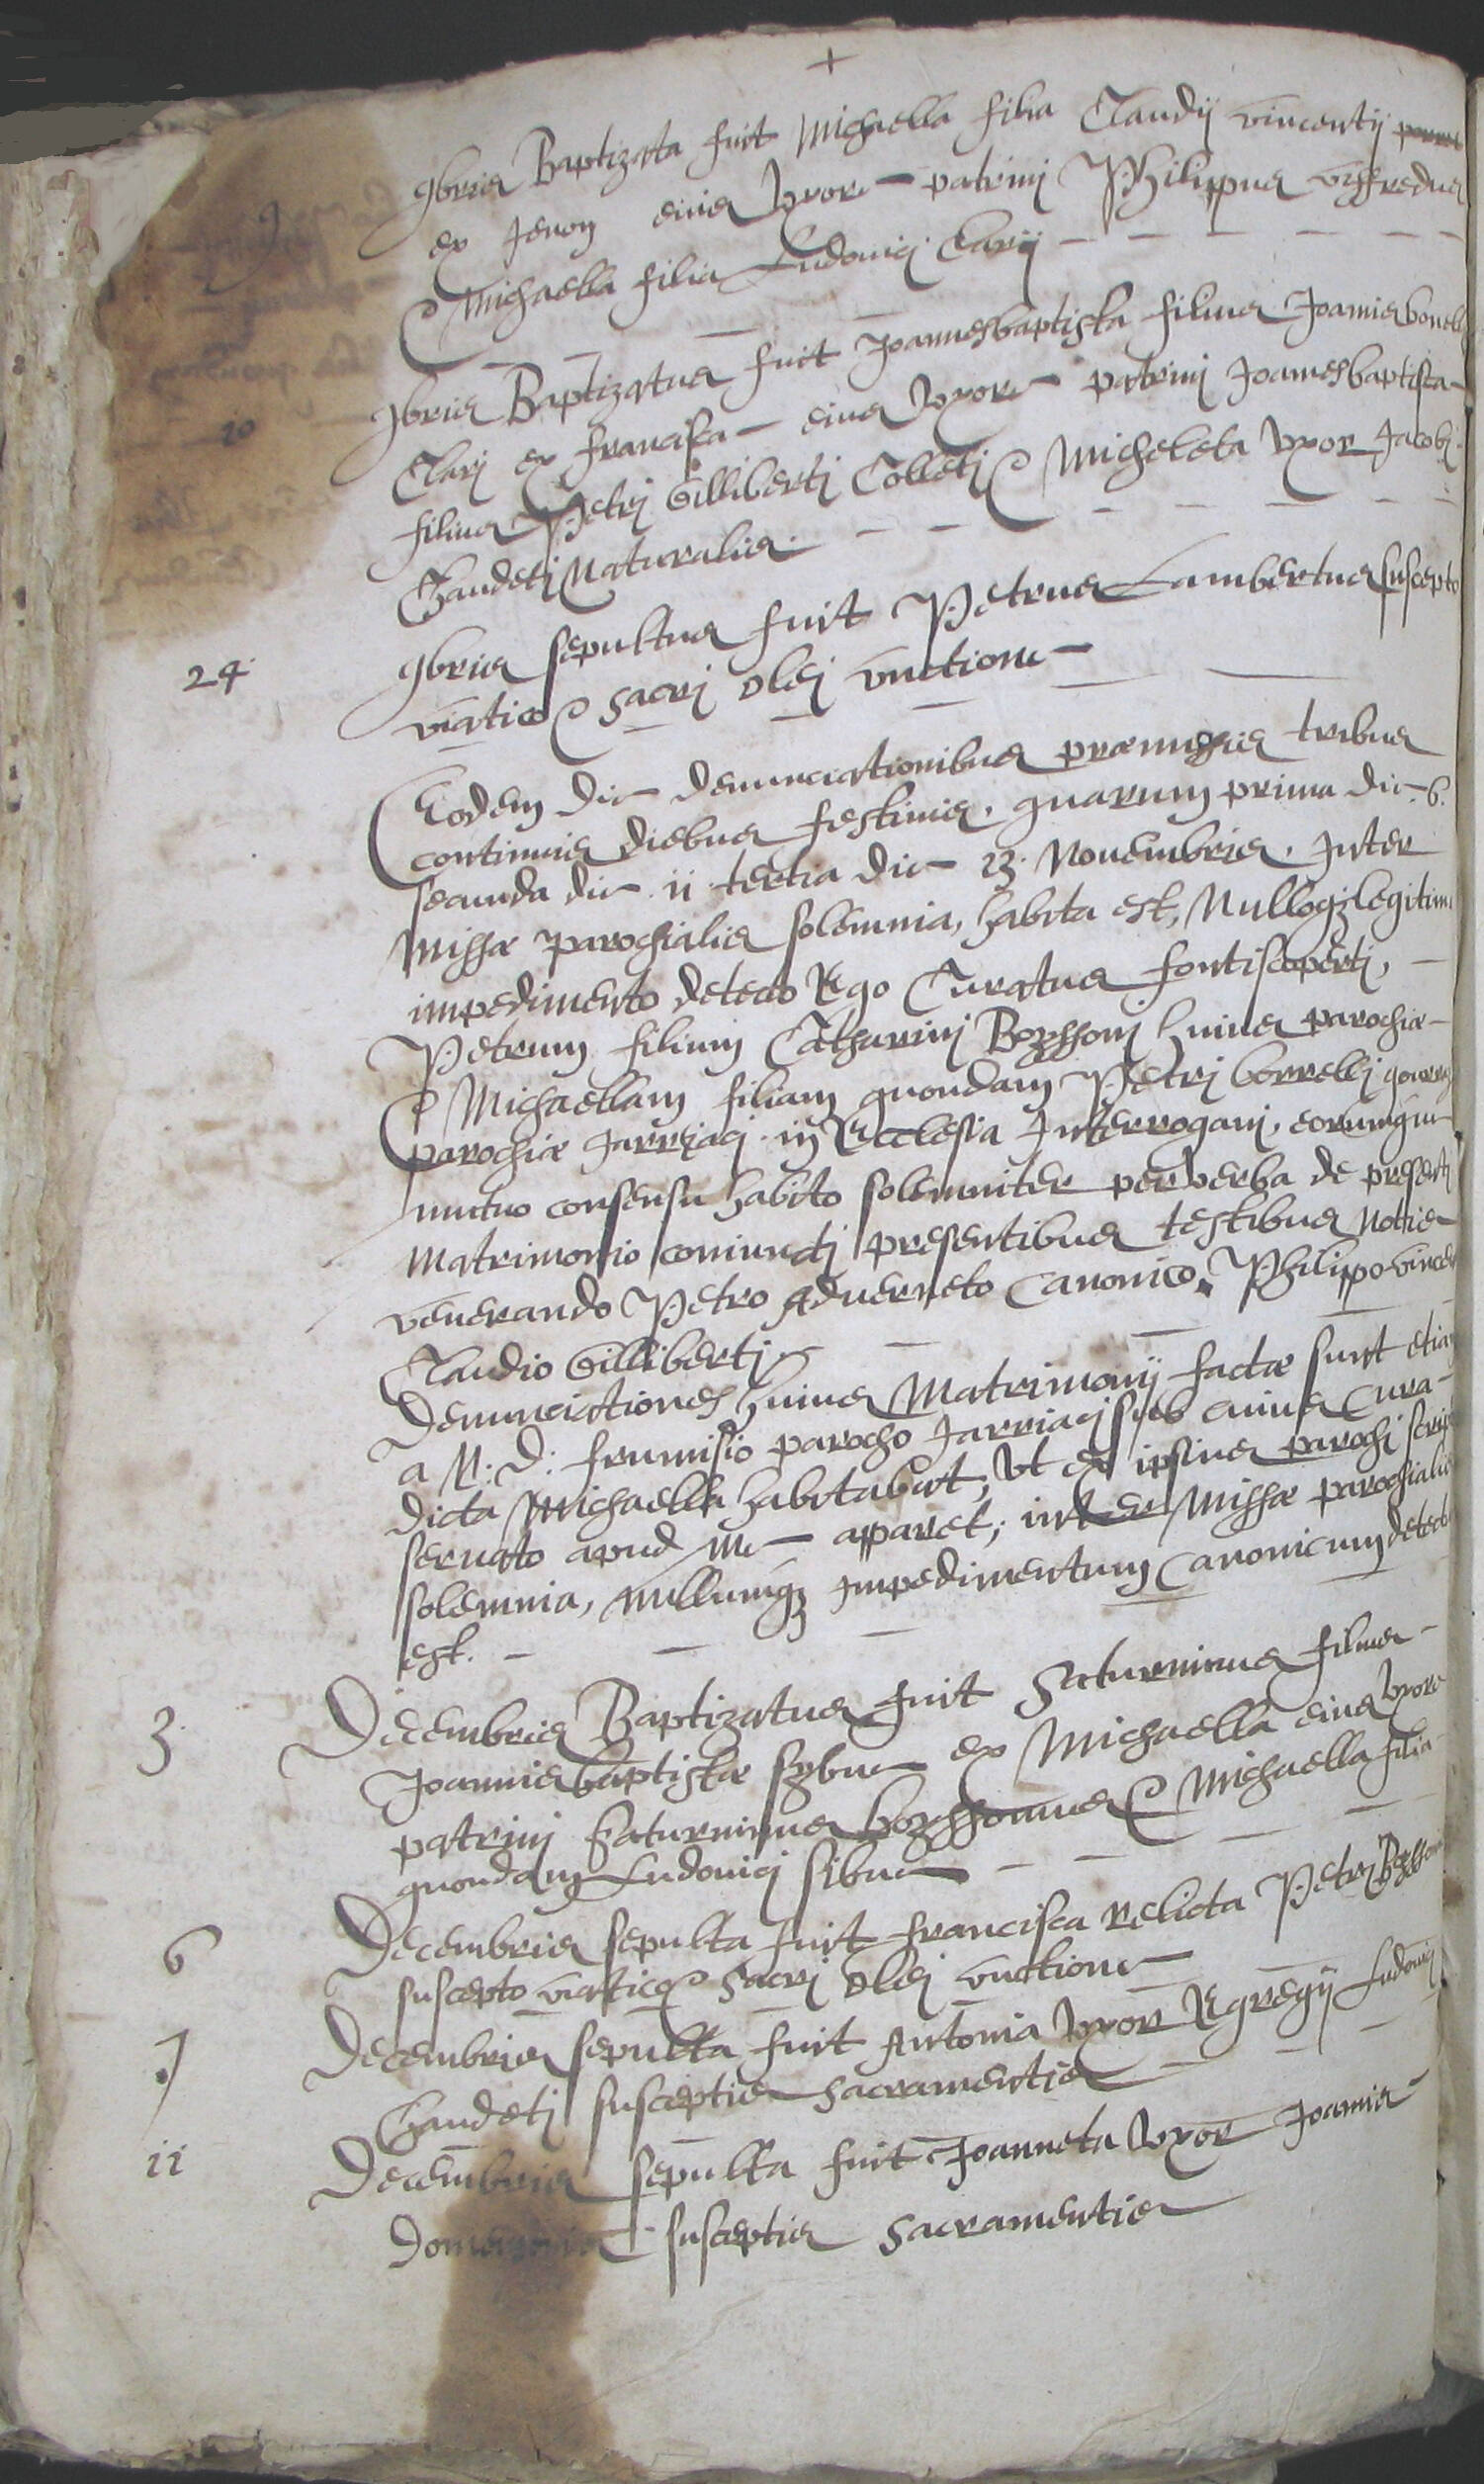 +
9 9bris Baptizata fuit Michaella filia Claudij vincentij
ex Jenon eius Uxore patrini Philippus viffredus
& Michaella filia Ludovici Clarij
10 9bris Baptizatus fuit Joannesbaptista filius Joannis bonelli
Clarj ex francisca eius Uxore patrini Joannesbaptista
filius Petrj Gilliberti Colletj & Micheleta Uxor Jacobj
Chaudetj Naturalis.
24 9bris sepultus fuit Petrus Lambertus suscepto
viatico & sacrj olej unctione
Eodem die denunciationibus præmissis tribus
continuis diebus festiuis, quarum prima die 6.
secunda die 11 tertia die 23. Nouembris, Inter
Missæ parochialis solemnia, habita est, Nulloqz legitimo
impedimento detecto Ego Curatus fontiscopertj,
Petrum filium Catharinj Borssonj huius parochiæ
& Michaellam filiam quondam Petrj borrellj
parochiæ Jarriacj in Ecclesia Interrogauj, eorumque
mutuo consensu habito solemniter per verba de presentj
Matrimonio coniunctj presentibus testibus notis
venerando Petro Aduerneto Canonico, Philippo
Claudio Gillibertj
Denunciationes huius Matrimonij factæ sunt etiam
a R: D: frumisio parocho Jarriacj sub cuius cura
dicta Michaella habitabat, Ut ex ipsius parochj
seruato apud me apparet; inter Missæ parochialis
solemnia, nullumqz Impedimentum Canonicum detectum
est.
3 Decembris Baptizatus fuit Saturninus filius
Joannisbaptistæ sybue ex Michaella eius Uxore
patrinj Saturninus borssonus & Michaella filia
quondam Ludovicj sibue
6 Decembris sepulta fuit francisca relicta Petrj
suscepto viatico & sacrj olej unctione
7 Decembris sepulta fuit Antonia Uxor Egregij Ludovicj
Chaudetj susceptis sacramentis
11 Decembris sepulta fuit Joanneta Uxor Joannis
susceptis Sacramentis